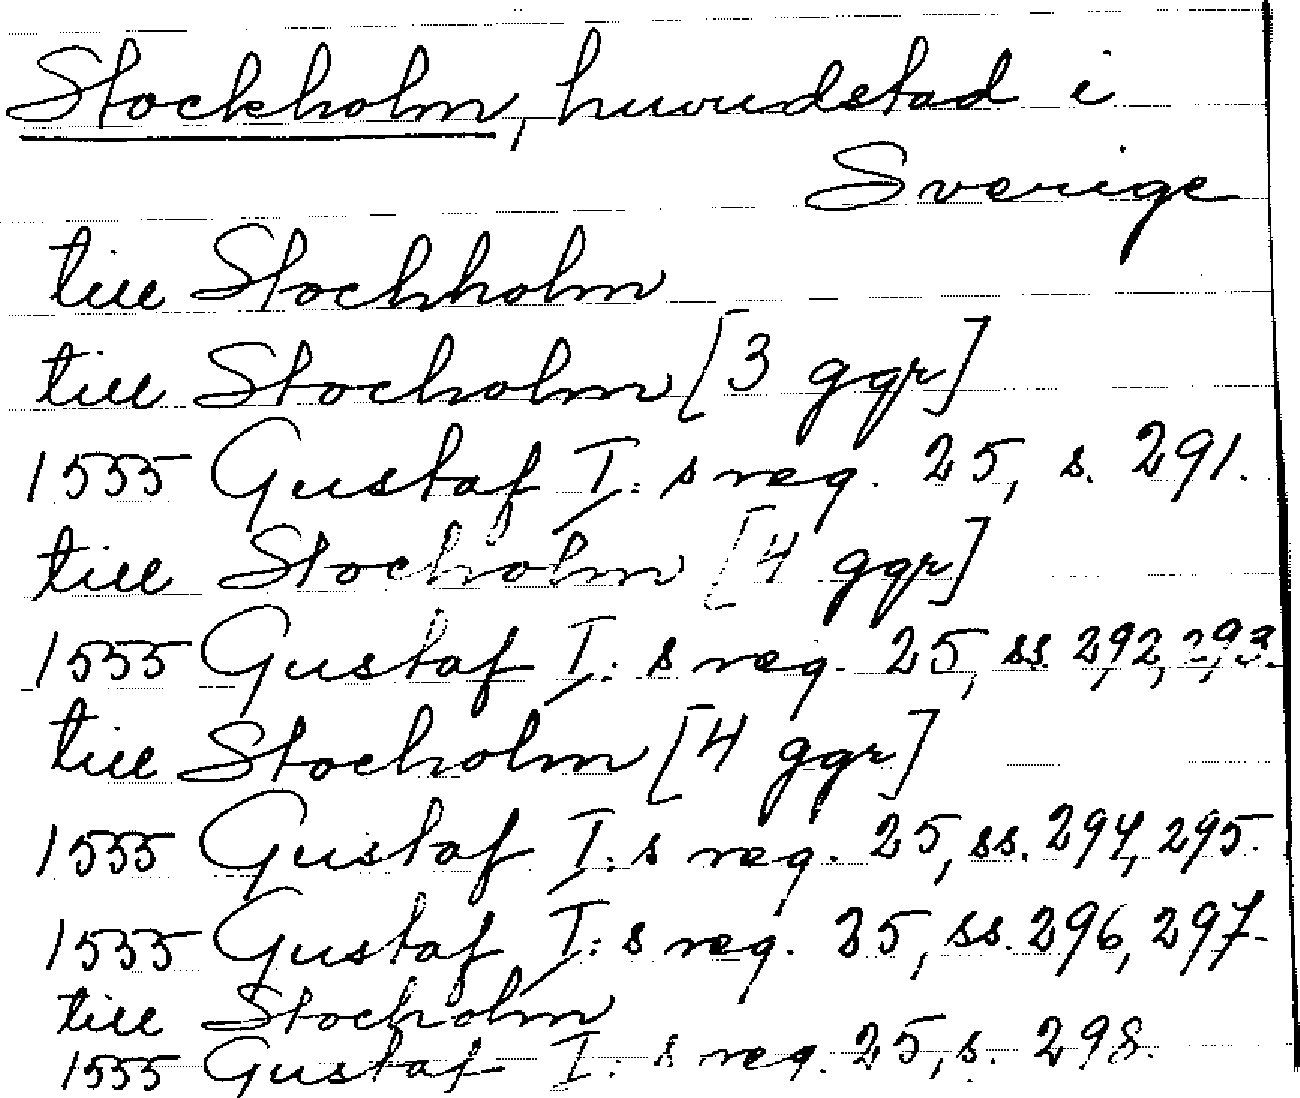 Stockholm, huvudstad i
Sverige
till Stockholm
till Stocholm [3 ggr]
1555 Gustaf I:s reg. 25, s. 291.
till Stocholm [4 ggr]
1555 Gustaf I:s reg. 25, ss. 292, 293.
till Stocholm [4 ggr]
1555 Gustaf I:s reg. 25, ss. 294, 295.
1555 Gustaf I:s reg. 25, ss. 296, 297.
till Stocholm
1555 Gustaf I:s reg. 25, s. 298.